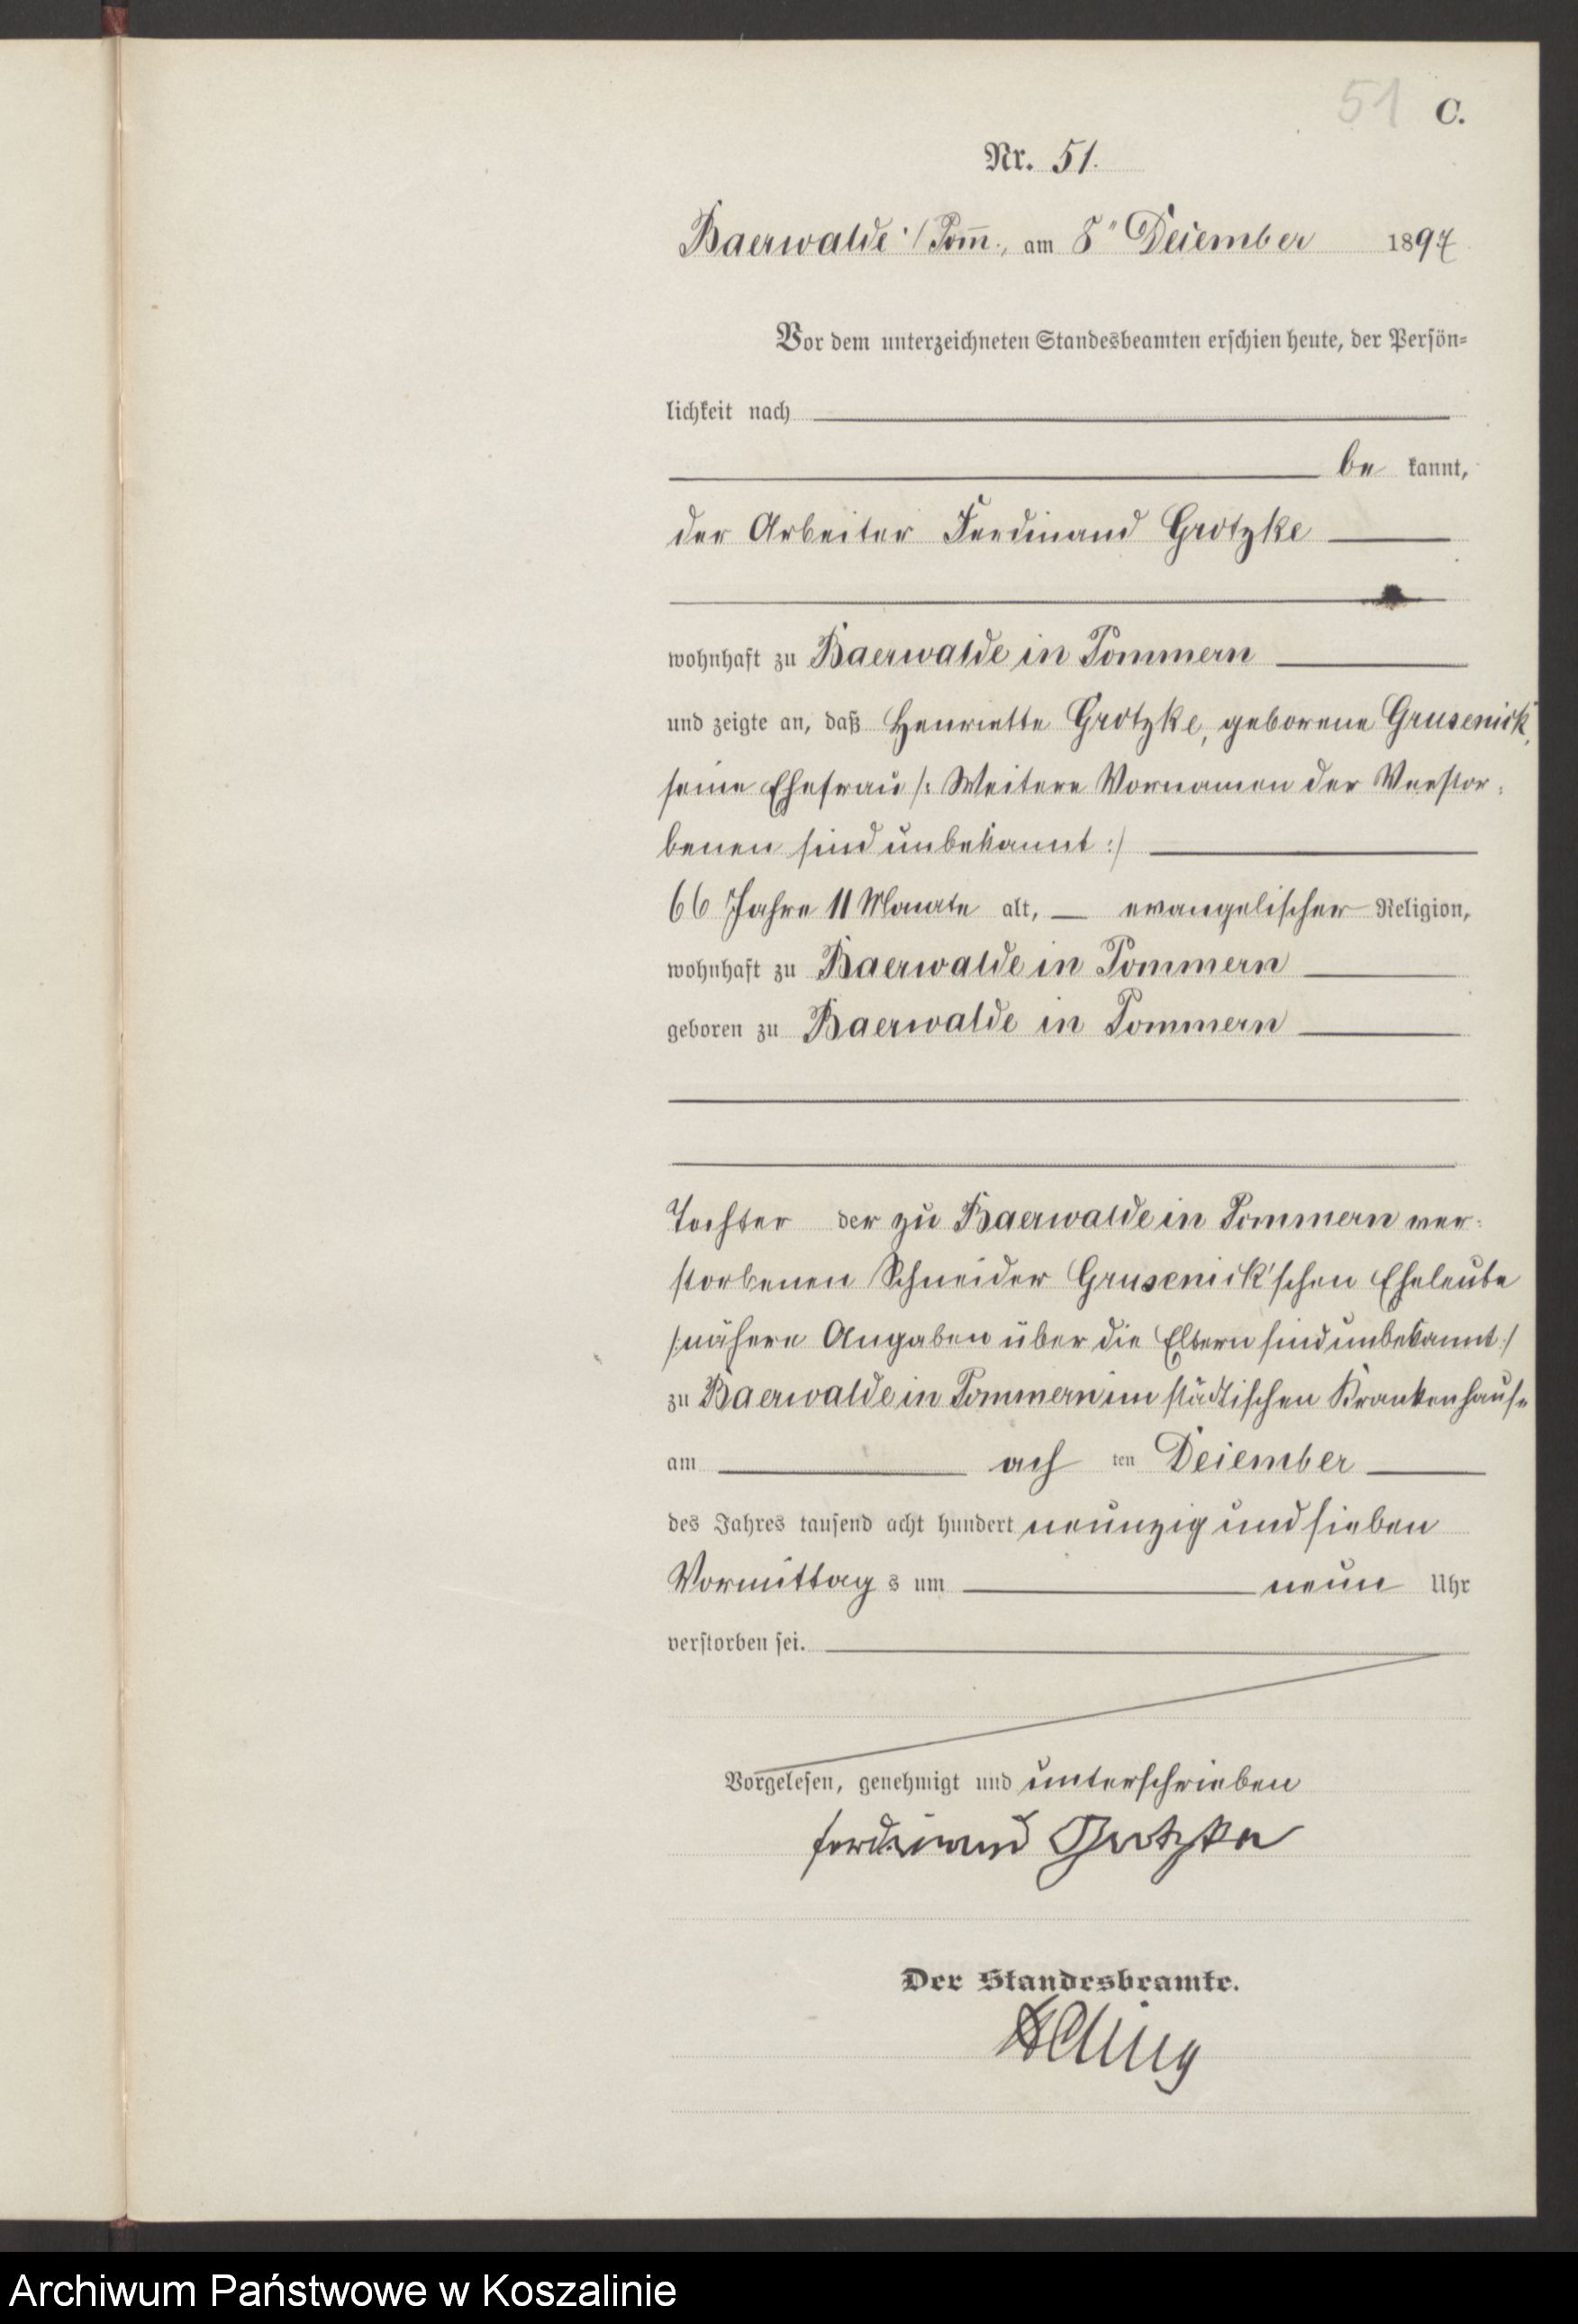 51 C.
Nr. 51.
Baerwalde i/Pom̅., am 8" December 1897
Vor dem unterzeichneten Standesbeamten erschien heute, der Persön=
lichkeit nach
be kannt,
der Arbeiter Ferdinand Grotzke
wohnhaft zu Baerwalde in Pommern
und zeigte an, daß Henriette Grotzke, geborene Grusenick,
seine Ehefrau /: Weitere Vornamen der Verstor:
benen sind unbekannt :/
66 Jahre 11 Monate alt, evangelischer Religion,
wohnhaft zu Baerwalde in Pommern
geboren zu Baerwalde in Pommern
Tochter der zu Baerwalde in Pommern ver:
storbenen Schneider Grusenick'schen Eheleute
/:nähere Angaben über die Eltern sind unbekannt:/
zu Baerwalde in Pommern im städtischen Krankenhause
am ach ten December
des Jahres tausend acht hundert neunzig und sieben
Vormittag s um neun Uhr
verstorben sei.
Vorgelesen, genehmigt und unterschrieben
Ferdinand Grotzke
Der Standesbeamte.
Archiwum Państwowe w Koszalinie